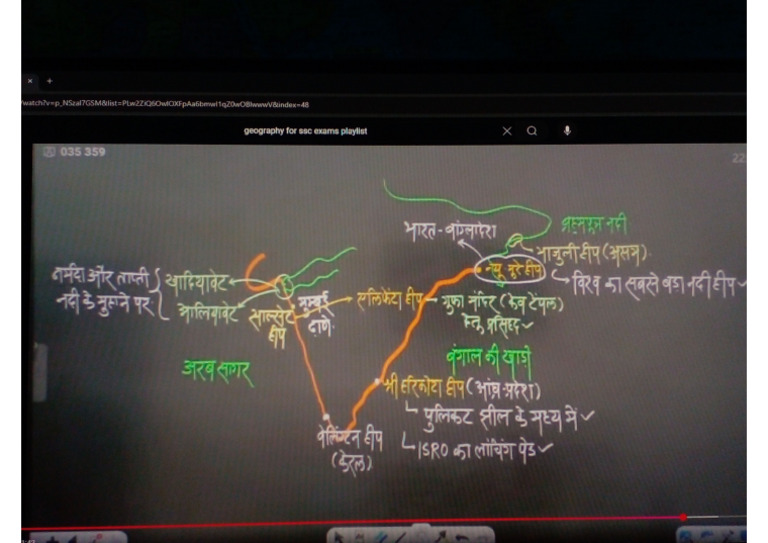 watch?v=p_NSzal7GSM&list=PLw2ZiQ6OwlOXFpAa6bmwl1qZ0wOBlwwwV&index=48
geography for ssc exams playlist
035 359
22
भारत-बांग्लादेश
ब्रह्मपुत्र नदी
माजुली द्वीप (असम)
न्यू मूरे द्वीप
विश्व का सबसे बड़ा नदी द्वीप
नर्मदा और ताप्ती
नदी के मुहाने पर
खादियाबेट
आलियाबेट
साल्सेट
द्वीप
मुम्बई
ठाणे
एलिफेंटा द्वीप
गुफा मंदिर (केव टेंपल)
प्रसिद्ध
अरब सागर
बंगाल की खाड़ी
श्री हरिकोटा द्वीप (आंध्र-प्रदेश)
पुलिकट झील के मध्य में
ISRO का लांचिंग पेड
वेलिंग्टन द्वीप
(केरल)